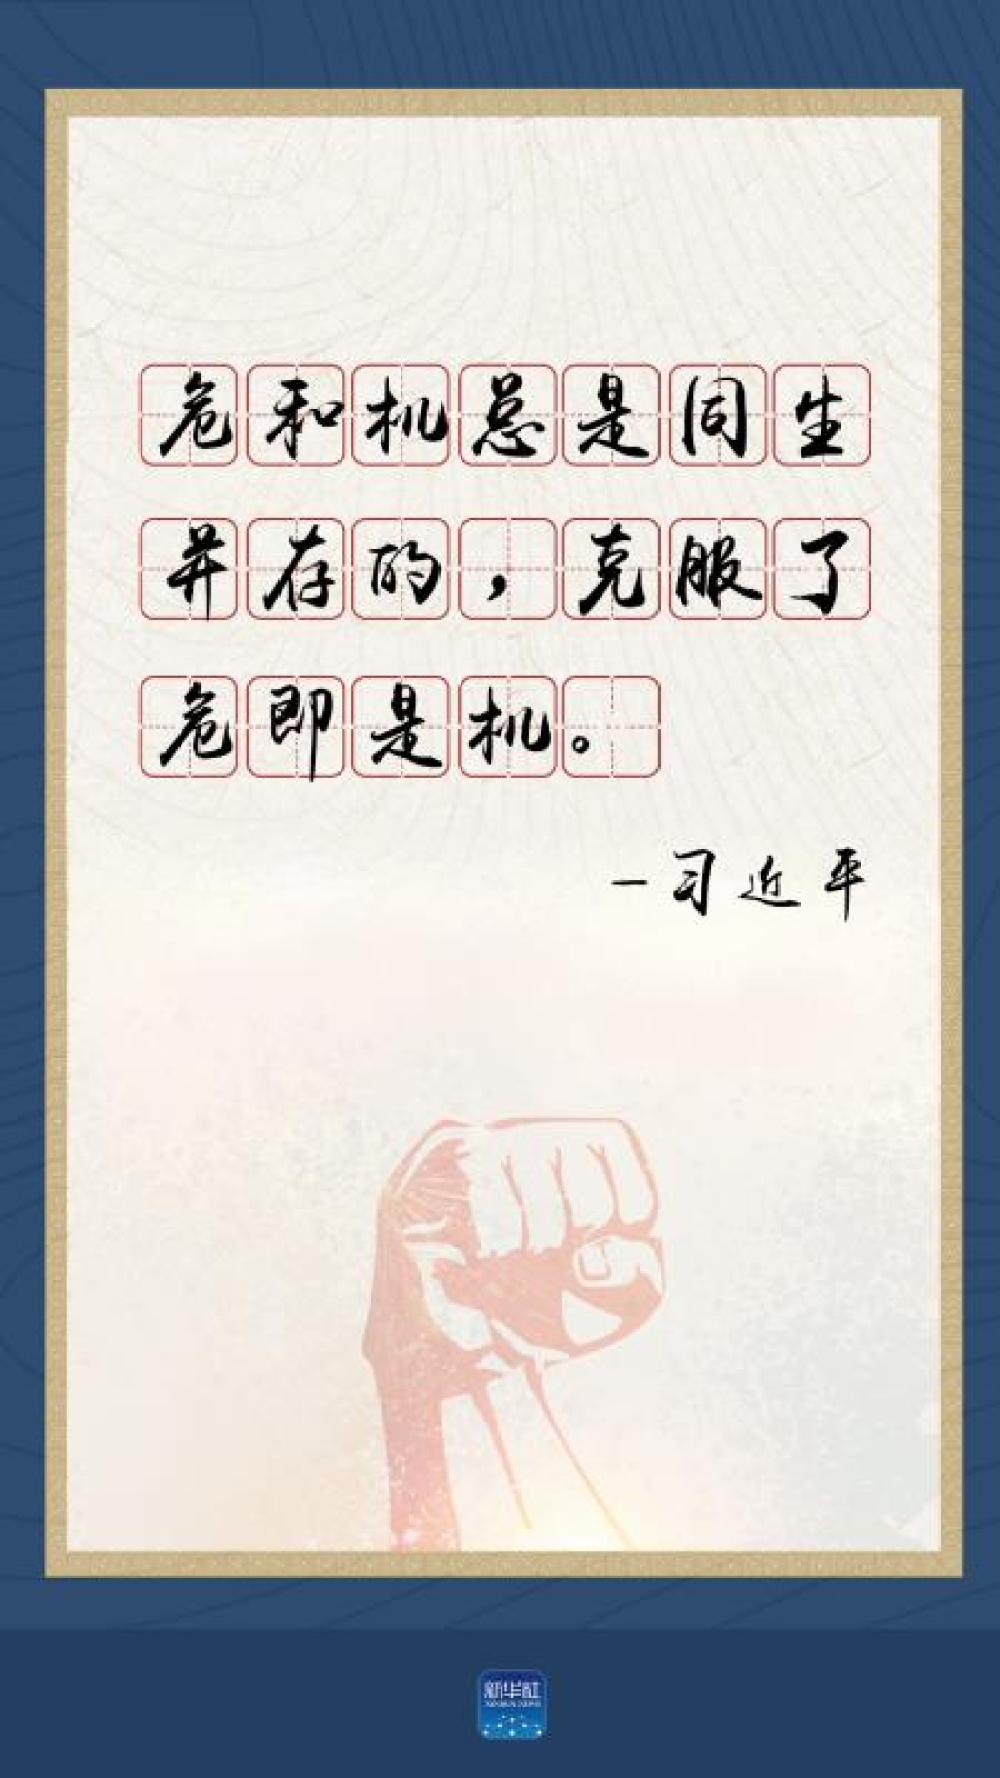 危和机总是同生
并存的，克服了
危即是机。
-习近平
新华社